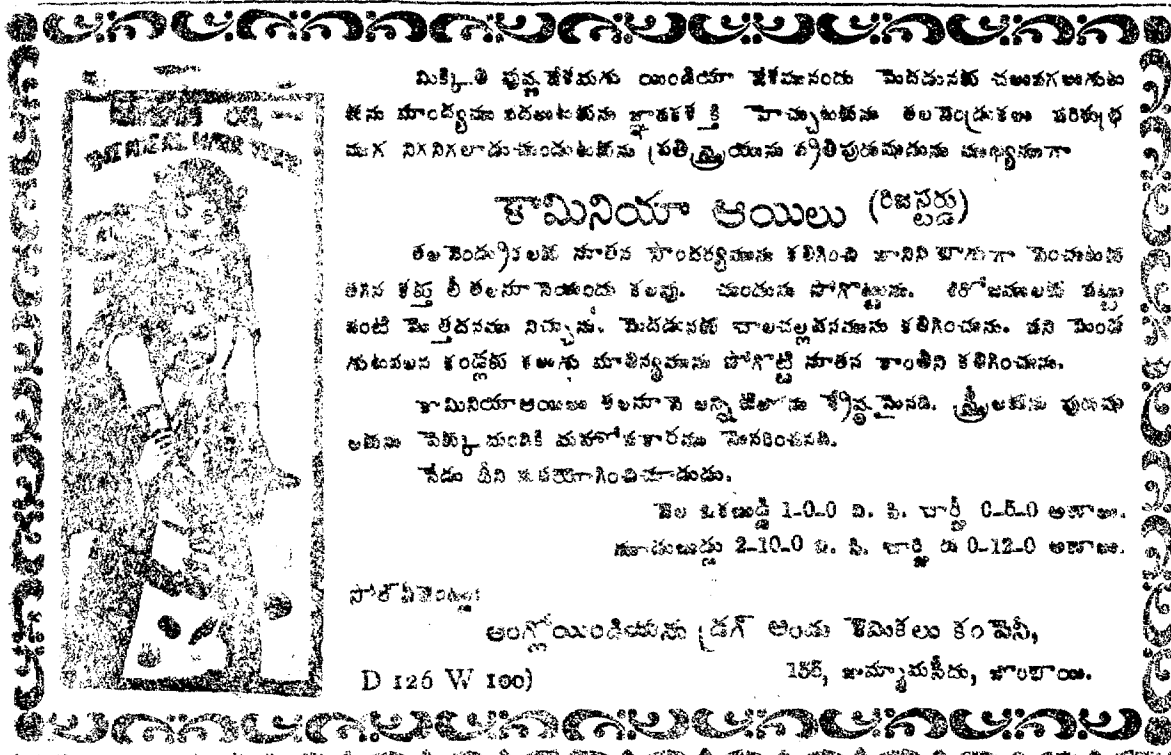 మిక్కిలి ఉష్ణదేశమగు యిండియా దేశమునందు మెదడునకు చలువగలుగుట
కును మాంద్యము వదలుటకును జ్ఞాపకశక్తి హెచ్చుటకును తలవెంద్రుకలు పరిశుభ్ర
ముగ నిగనిగలాడుచుండుటకును ప్రతిస్త్రీయును ప్రతిపురుషుడును ముఖ్యముగా
కామినియా ఆయిలు (రిజస్టర్డు)
తలవెండ్రుకలకు నూతన సౌందర్యమును కలిగించి వానిని బాగుగా పెంచుటకు
తగిన శక్తు లీ తలనూనెయందు కలవు. చుండును పోగొట్టును. శిరోజములకు పట్టు
వంటి మెత్తదనము నిచ్చును. మెదడునకు చాలచల్లదనమును కలిగించును. పని మెండ
గుటవలన కండ్లకు కలుగు మాలిన్యమును పోగొట్టి నూతన కాంతిని కలిగించును.
కామినియాఆయిలు తలనూనె అన్నిటిలోను శ్రేష్ఠమైనది. స్త్రీలకును పురుషు
లకును పెక్కుమందికి మహోపకారము నొనరించినది.
నేడు దీని నుపయోగించిచూడుడు.
వెల ఒకబుడ్డి 1-0-0 వి. పి. చార్జి 0-5-0 అణాలు.
మూడుబుడ్లు 2-10-0 వి. పి. చార్జి రు 0-12-0 అణాలు.
సోల్ ఏజెంట్లు:
ఆంగ్లోయిండియను డ్రగ్ అండు కెమికలు కంపెనీ,
D 126 W 100)
155, జుమ్మామసీదు, బొంబాయి.